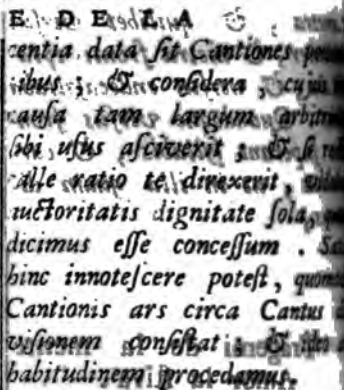 E DE LA
centia data sit Cantiones
ibus ; & considera , cujus
causa tam largum arbitri
sibi usus asciverit ; & si
calle ratio te direxerit ,
auctoritatis dignitate sola,
dicimus esse concessum .
hinc innotescere potest ,
Cantionis ars circa Cantus
visionem consistat ; & ideo
habitudinem procedamus.